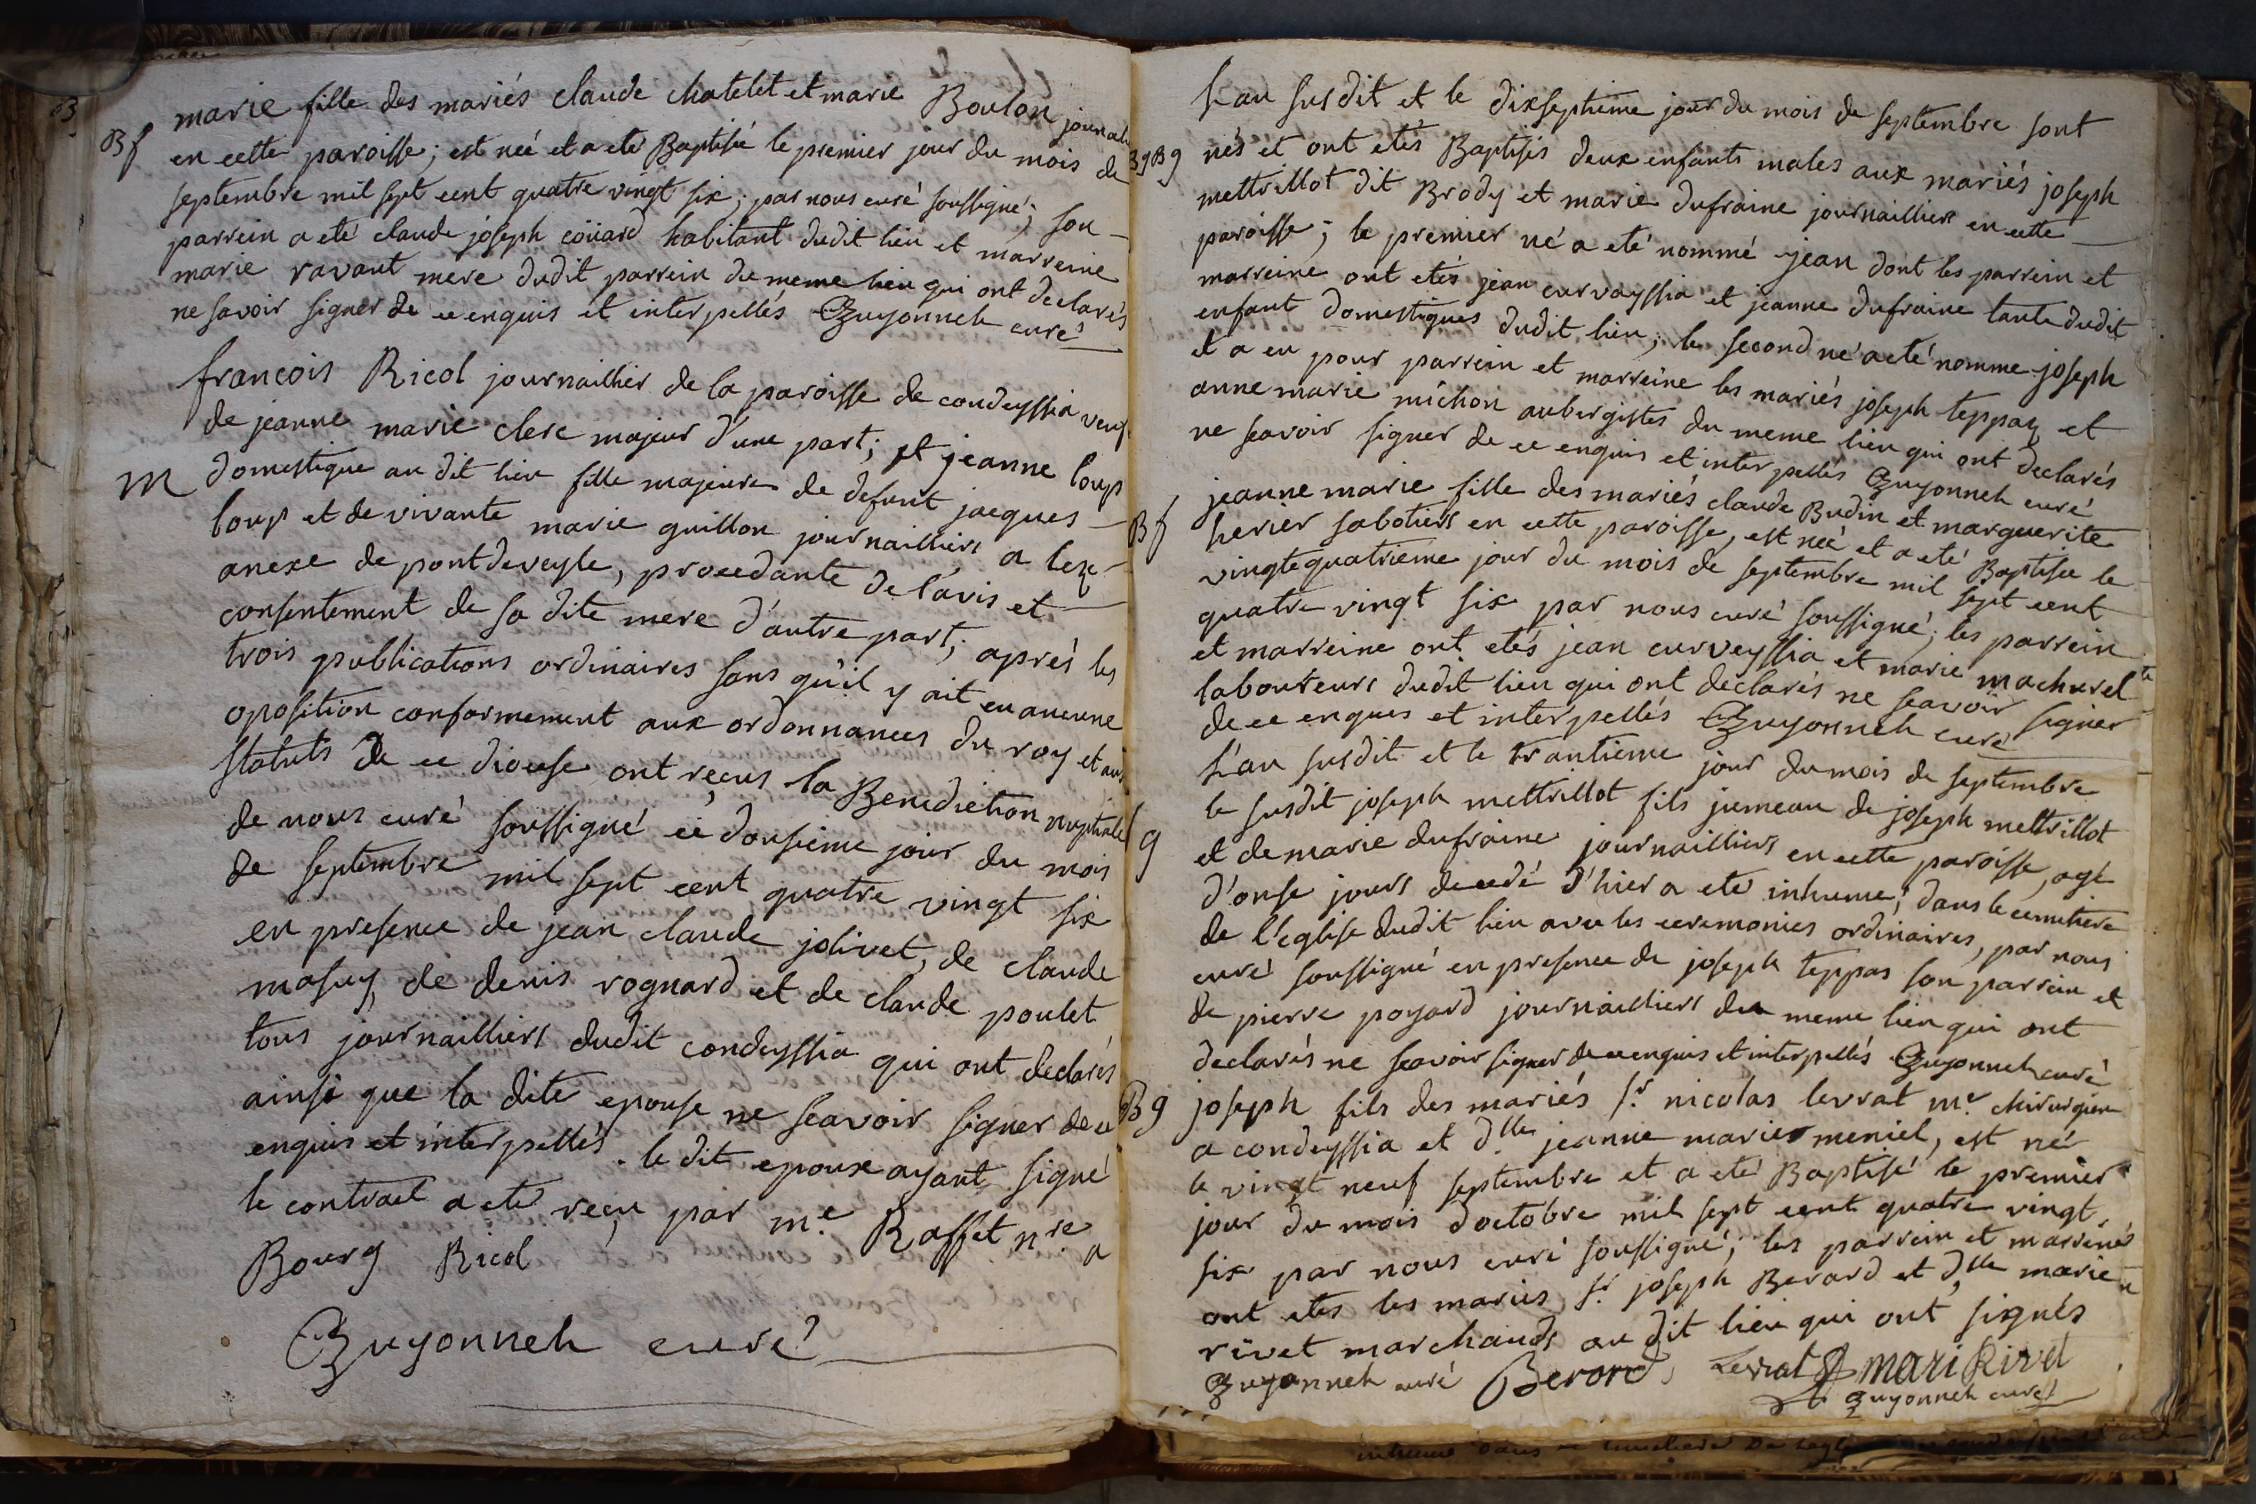 Bf
marie fille des mariés claude chatelet et marie Boulon
en cette paroisse; est néé et a eté Baptiséé le premier jour du mois de
septembre mil sept cent quatre vingt six; par nous curé soussigné; son
parrein a eté claude joseph coüard habitant dudit lieu et marreine
marie ravant mere dudit parrein du meme lieu qui ont declarés
ne savoir signer de ce enquis et interpellés Guyonneh curé
M
francois Ricol journaillier de la paroisse de condeyssia veuf
de jeanne marie clerc majeur d'une part; et jeanne loup
domestique au dit lieu fille majeure de defunt jacques
loup et de vivante marie guillon journailliers a lex
anexe de pontdeveyle, procedante de l'avis et
consentement de sa dite mere d'autre part; aprés les
trois publications ordinaires sans qu'il y ait eu aucune
oposition conformement aux ordonnances du roy et aux
statuts de ce diocese ont reçus la Benediction nuptiale
de nous curé soussigné ce dousieme jour du mois
de septembre mil sept cent quatre vingt six
en presence de jean claude jolivet, de claude
masuy, de denis rognard et de claude poulet
tous journailliers dudit condeyssia qui ont declarés
ainsi que la dite epouse ne scavoir signer de ce
enquis et interpellés. le dit epoux ayant signé
le contract a eté reçu par me. Raffet nre a
Bourg Ricol
Guyonneh curé
Bg Bg
L'an susdit et le dixseptieme jour du mois de septembre sont
nés et ont etés Baptisés deux enfants males aux mariés joseph
mettrillot dit Brody et marie dufraine journailliers en cette
paroisse; le premier né a eté nommé jean dont les parrein et
marreine ont etés jean curvayssia et jeanne dufraine tante dudit
enfant domestiques dudit lieu; le second né a eté nomme joseph
et a eu pour parrein et marreine les mariés joseph teppaz et
anne marie michon aubergistes du meme lieu qui ont declarés
ne scavoir signer de ce enquis et interpellés Guyonneh curé
Bf
jeanne marie fille des mariés claude Budin et marguerite
herier sabotiers en cette paroisse, est néé et a eté Baptisée le
vingtequatrieme jour du mois de septembre mil sept cent
quatre vingt six par nous curé soussigné; les parrein
et marreine ont etés jean curveyssia et marie machurel
laboureurs dudit lieu qui ont declarés ne scavoir signer
de ce enquis et interpellés Guyonneh curé
g
L'an susdit et le trantieme jour du mois de septembre
le susdit joseph mettrillot fils jumeau de joseph mettrillot
et de marie dufraine journailliers en cette paroisse, agé
d'onse jours decedé d'hier a eté inhumé, dans le cemitiere
de l'eglise dudit lieu avec les ceremonies ordinaires, par nous
curé soussigné en presence de joseph teppas son parrein et
de pierre poyard journailliers du meme lieu qui ont
declarés ne scavoir signer de ce enquis et interpellés Guyonneh curé
Bg
joseph fils des mariés sr. nicolas levrat me. chirurgien
a condeyssia et dlle jeanne marie meniel, est né
le vingt neuf septembre et a eté Baptisé le premier
jour du mois d'octobre mil sept cent quatre vingt
six par nous curé soussigné; les parrein et marreine
ont etés les mariés sr. joseph Berard et dlle marie
rivet marchands au dit lieu qui ont signés
Guyonneh curé Berard Levrat mari Rivet
Guyonneh curé